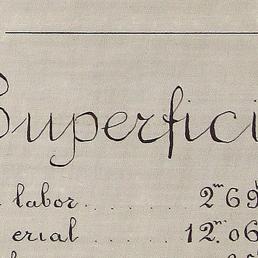 Superfici
labor........2ᵐ69
erial......12ᵐ.06